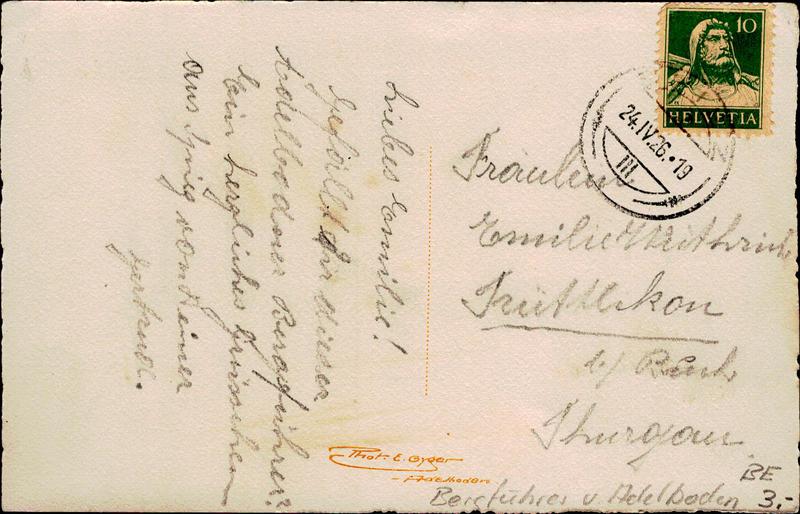 Liebes Emilie!
Gefällt dir dieser
Adelbodner Bergführer?
Ein herzliches Grüsschen
aus Spiez von deiner
Gertrud.
10
HELVETIA
24.IV.26.•19
III
Fräulein
Emilie Wüthrich
Trüttlikon
b/
Thurgau
Phot. E. Gyger
- Adelboden
BE
Bergführer v. Adelboden 3.-